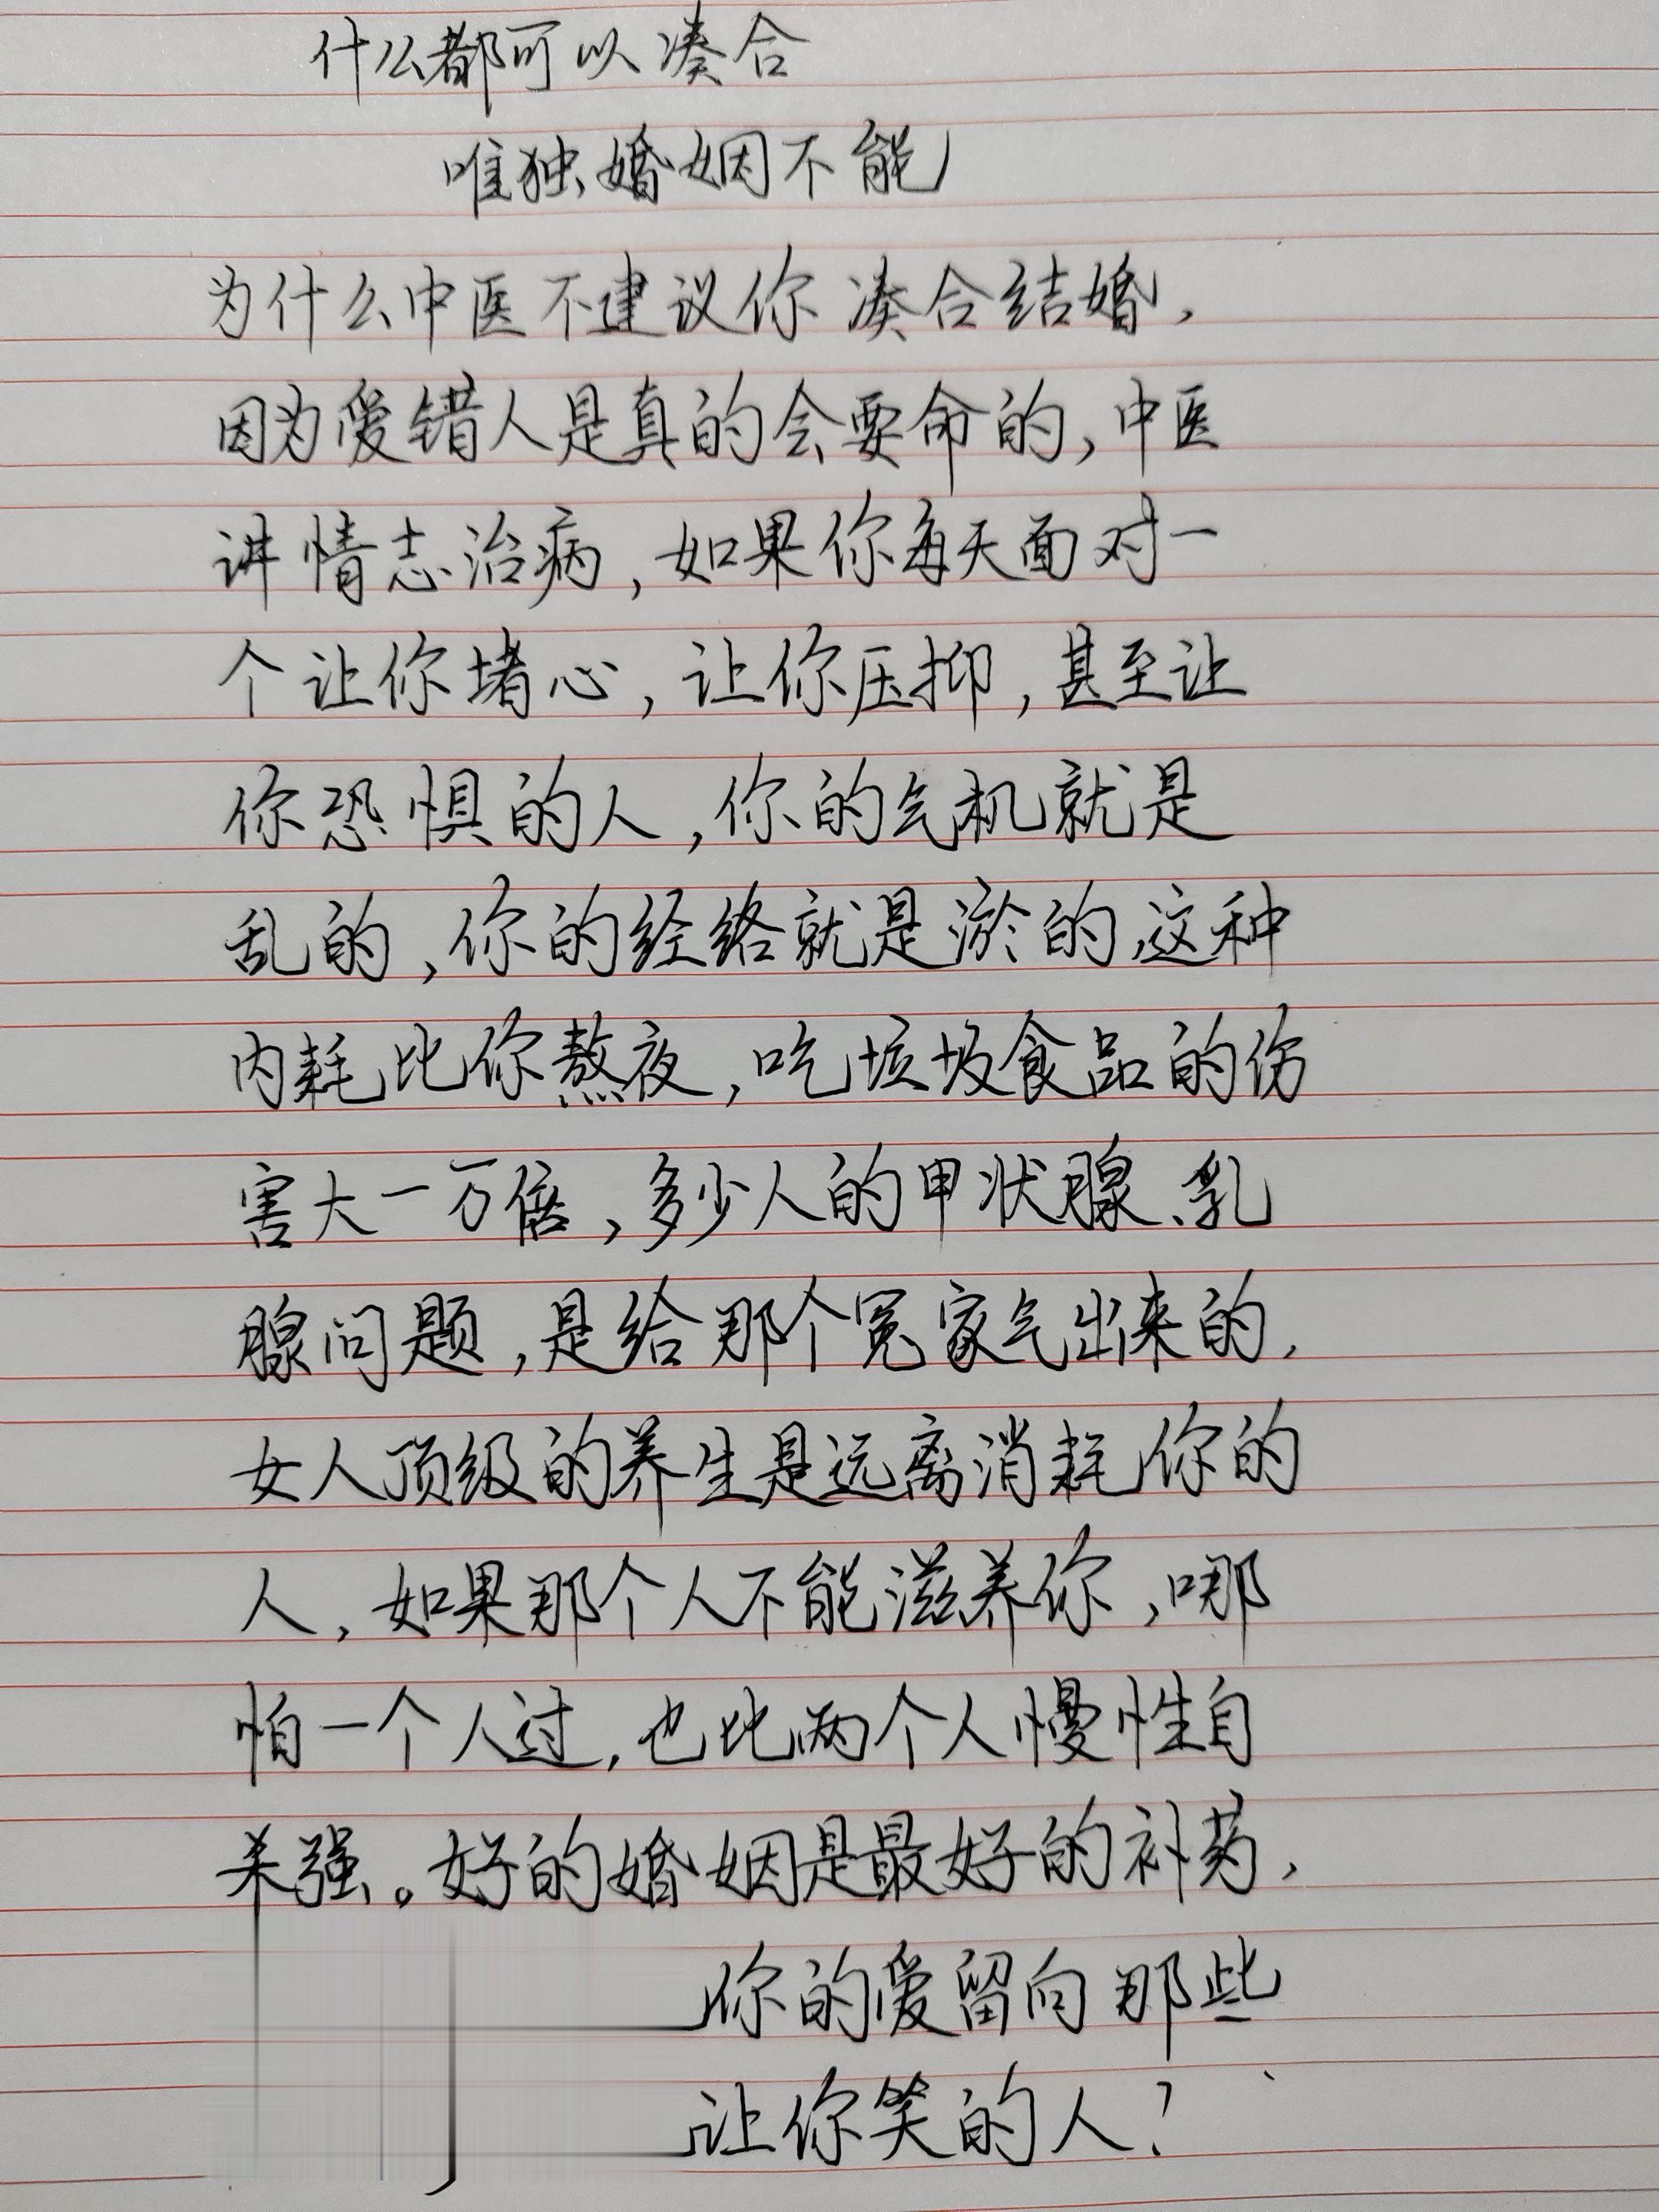 什么都可以凑合
唯独婚姻不能
为什么中医不建议你凑合结婚,
因为爱错人是真的会要命的,中医
讲情志治病,如果你每天面对一
个让你堵心,让你压抑,甚至让
你恐惧的人,你的气机就是
乱的,你的经络就是淤的,这种
内耗比你熬夜,吃垃圾食品的伤
害大一万倍,多少人的甲状腺、乳
腺问题,是给那个冤家气出来的,
女人顶级的养生是远离消耗你的
人,如果那个人不能滋养你,哪
怕一个人过,也比两个人慢性自
杀强。好的婚姻是最好的补药,
你的爱留向那些
让你笑的人?